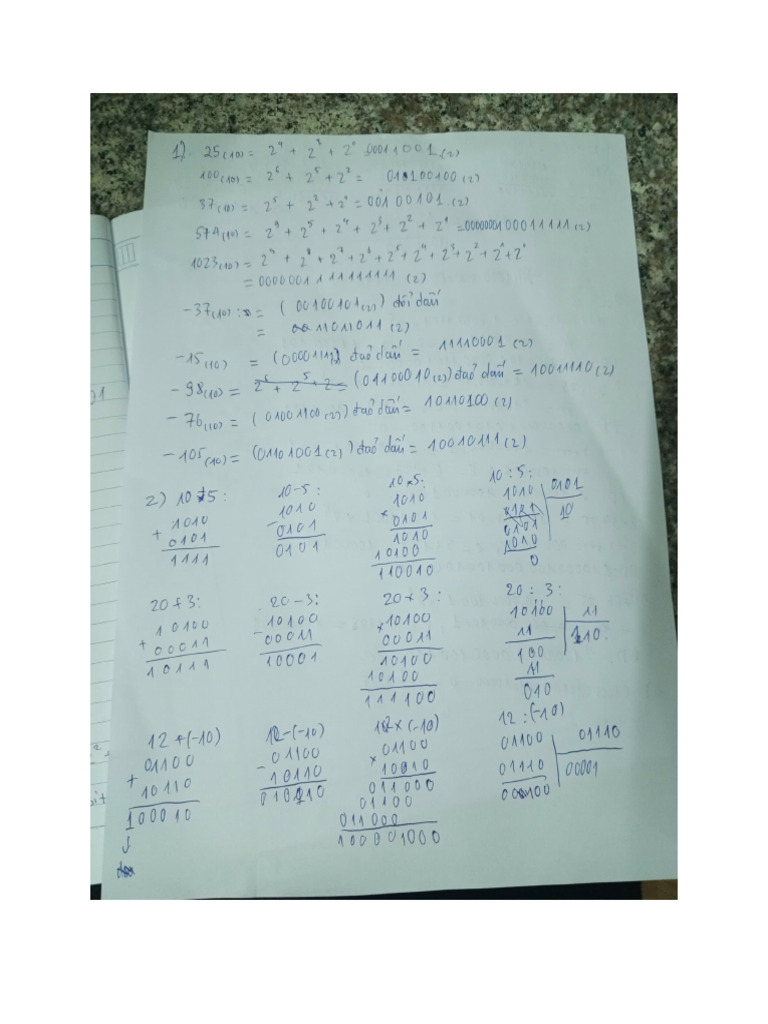 1) 25(10) = 2^4 + 2^3 + 2^0 00011001(2)
100(10) = 2^6 + 2^5 + 2^2 = 01100100(2)
37(10) = 2^5 + 2^2 + 2^0 = 00100101(2)
574(10) = 2^9 + 2^5 + 2^4 + 2^3 + 2^2 + 2^1 =
1023(10) = 2^9 + 2^8 + 2^7 + 2^6 + 2^5 + 2^4 + 2^3 + 2^2 + 2^1 + 2^0
= 0000001111111111(2)
-37(10) = (00100101(2)) đổi dấu
= 11011011(2)
-15(10) = (00001111) đảo dấu = 11110001(2)
-98(10) = (01100010(2)) đảo dấu = 10011110(2)
-76(10) = (01001100(2)) đảo dấu = 10110100(2)
-105(10) = (01101001(2)) đảo dấu = 10010111(2)
2) 10+5: 10-5: 10×5: 10:5:
1010 1010 1010 1010 0101
+ 0101 - 0101 × 0101 10
1111 0101 1010 0101
10100 1010
110010 0
20+3: 20-3: 20×3: 20:3:
10100 10100 ×10100 10100 11
+00011 -00011 00011 11 110
10111 10001 10100 100
10100 11
111100 010
12+(-10) 12-(-10) 12×(-10) 12:(-10)
01100 01100 01100 01100 01110
+ 10110 - 10110 × 10010 01110 00001
100010 011000
01100
011000
100001000